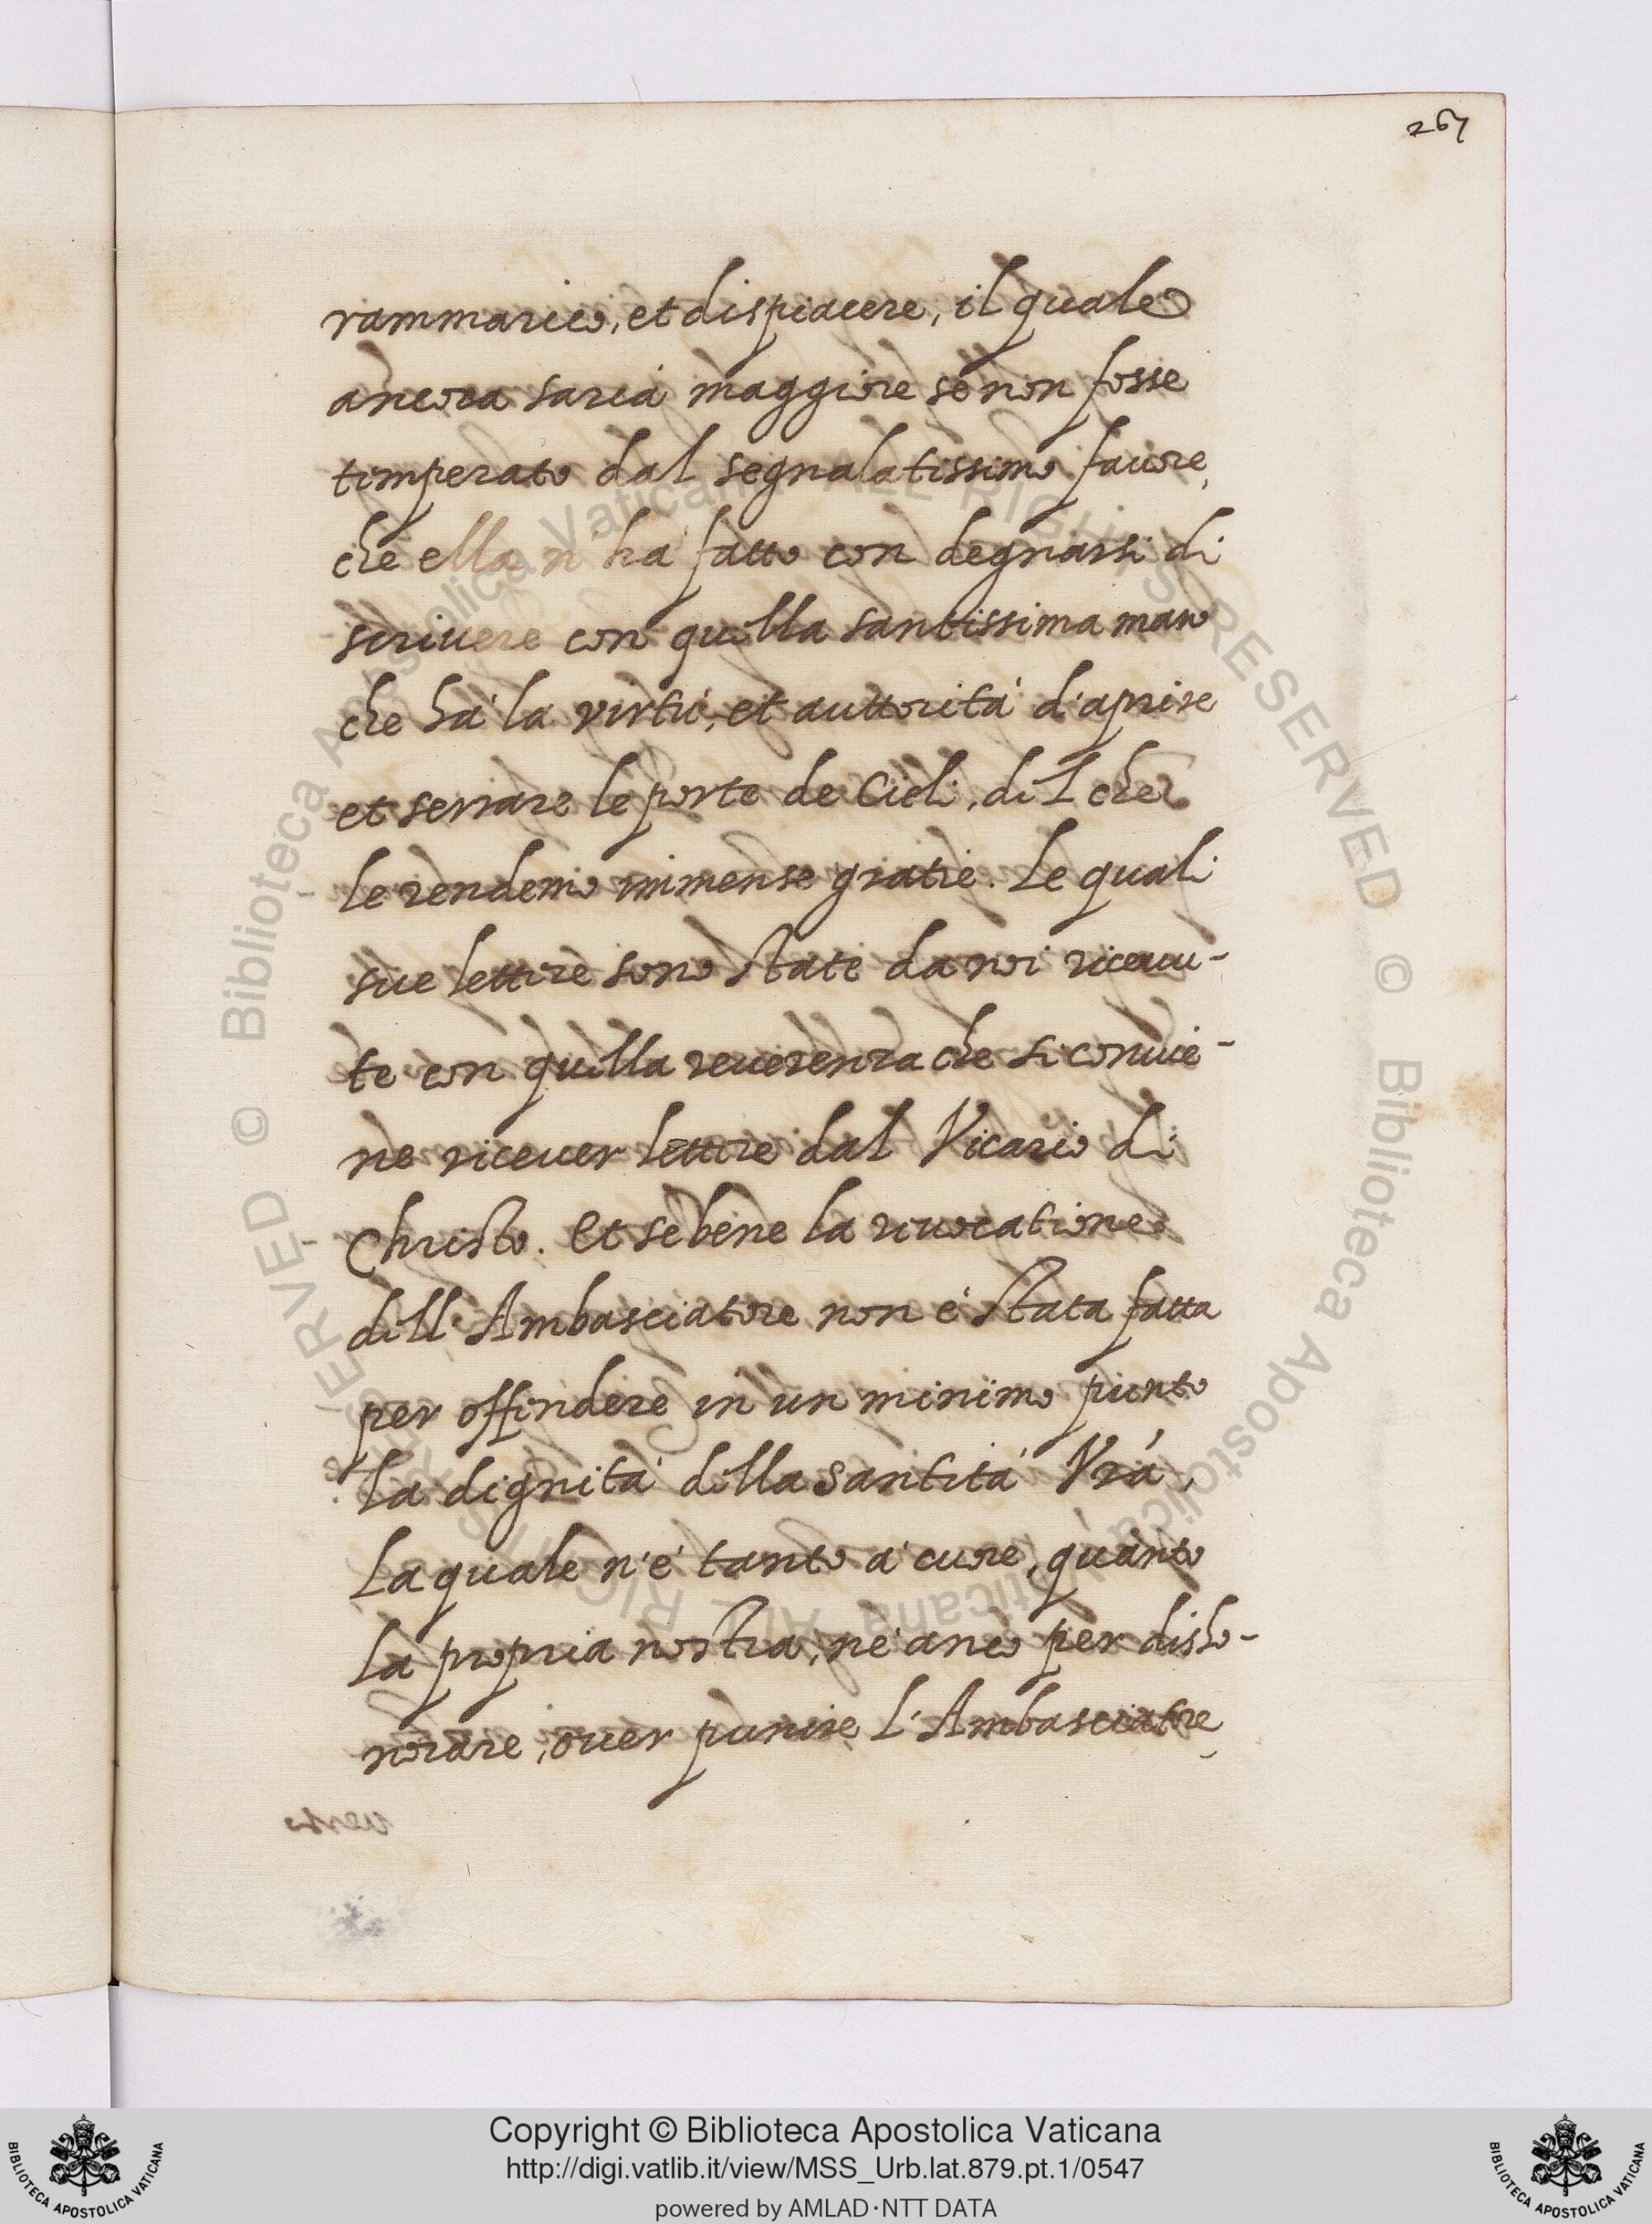 267
rammarico, et dispiacere, il quale
ancora saria maggiore se non fosse
temperato dal segnalatissimo favore,
che ella n ha fatto con degnarsi di
scrivere con quella santissima mano
che há la virtú, et auttoritá d'aprire
et serrare le porte de Cieli, del che
le rendemo immense gratie. Le quali
sue lettere sono state da noi riceuu-
te con quella reuerenza che si conuie-
ne riceuer lettere dal Vicario di
Christo. Et se bene la riuocatione
dell'Ambasciatore non é stata fatta
per offendere in un minimo punto
la dignitá della Santitá Vrá,
La quale n'é tanto á cuore, quanto
la propria nostra, né anco per disho-
norare, ouer punire l'Ambasciatore,
Copyright © Biblioteca Apostolica Vaticana
http://digi.vatlib.it/view/MSS_Urb.lat.879.pt.1/0547
powered by AMLAD·NTT DATA
BIBLIOTECA APOSTOLICA VATICANA
BIBLIOTECA APOSTOLICA VATICANA
© Biblioteca Apostolica Vaticana ALL RIGHTS RESERVED
© Biblioteca Apostolica Vaticana ALL RIGHTS RESERVED